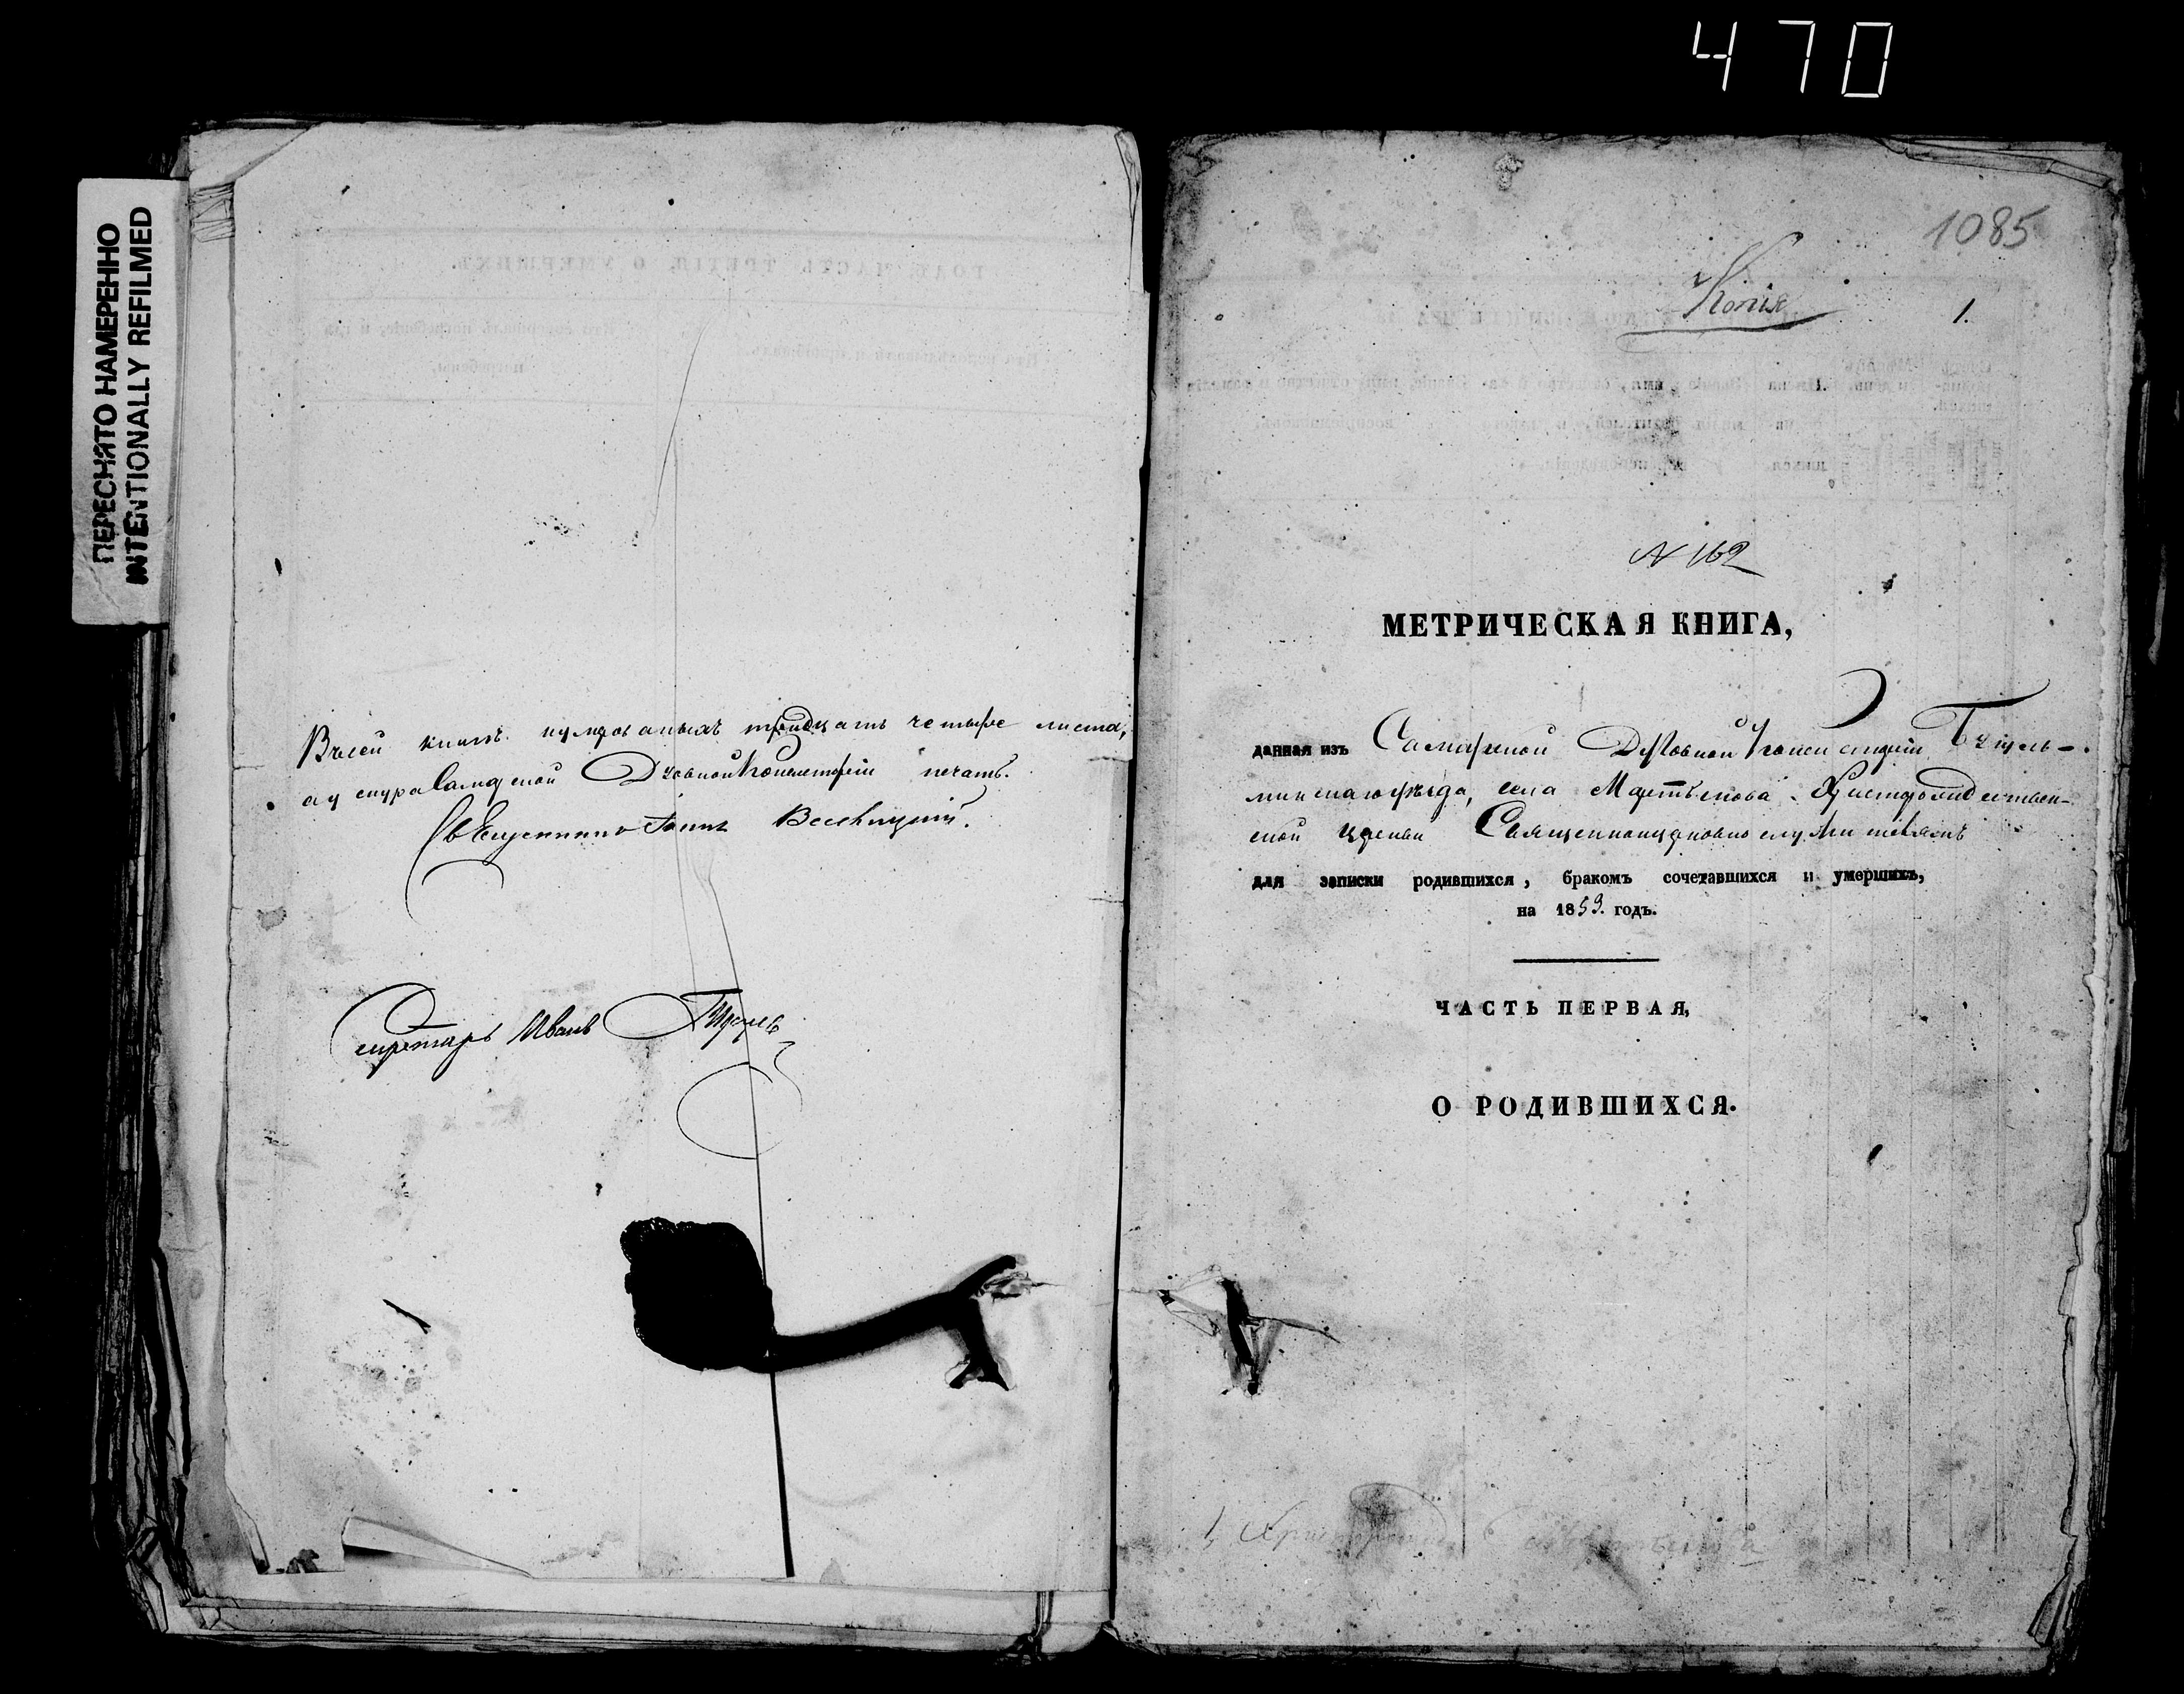 470
ПЕРЕСНЯТО НАМЕРЕННО
INTENTIONALLY REFILMED
Въ сей книгѣ нумерованыхъ тридцать четыре листа,
а у снура Самарской Духовной Консисторіи печать.
Секретарь Иванъ
1085
Копія
1.
№ 162
МЕТРИЧЕСКАЯ КНИГА,
данная изъ Самарской Духовной Консисторіи Бугуль-
минскаго уѣзда, села Мартыкова Христорождествен-
ской церкви Священноцерковнослужителямъ
для записки родившихся, бракомъ сочетавшихся и умершихъ,
на 1859. годъ.
ЧАСТЬ ПЕРВАЯ,
О РОДИВШИХСЯ.